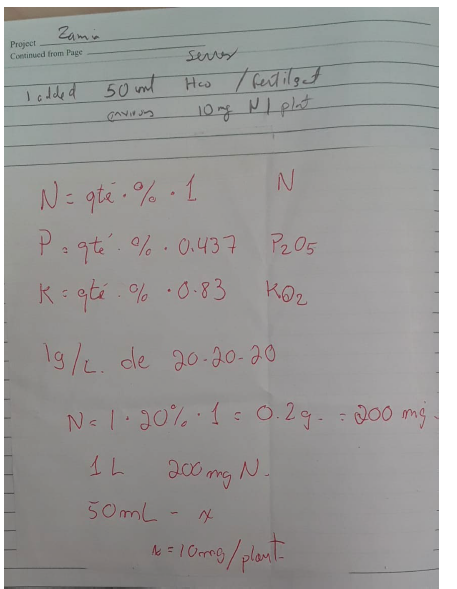 Project Zamu
Continued from Page
serres
I added 50 ml H2O / fertilizat
environ 10 mg N / plant
N = qté . % . 1 N
P = qté . % . 0.437 P2O5
K = qté . % . 0.83 KO2
1g/L. de 20-20-20
N = 1 . 20% . 1 = 0.2g. = 200 mg.
1 L 200 mg N -
50 mL - x
x = 10 mg/plant